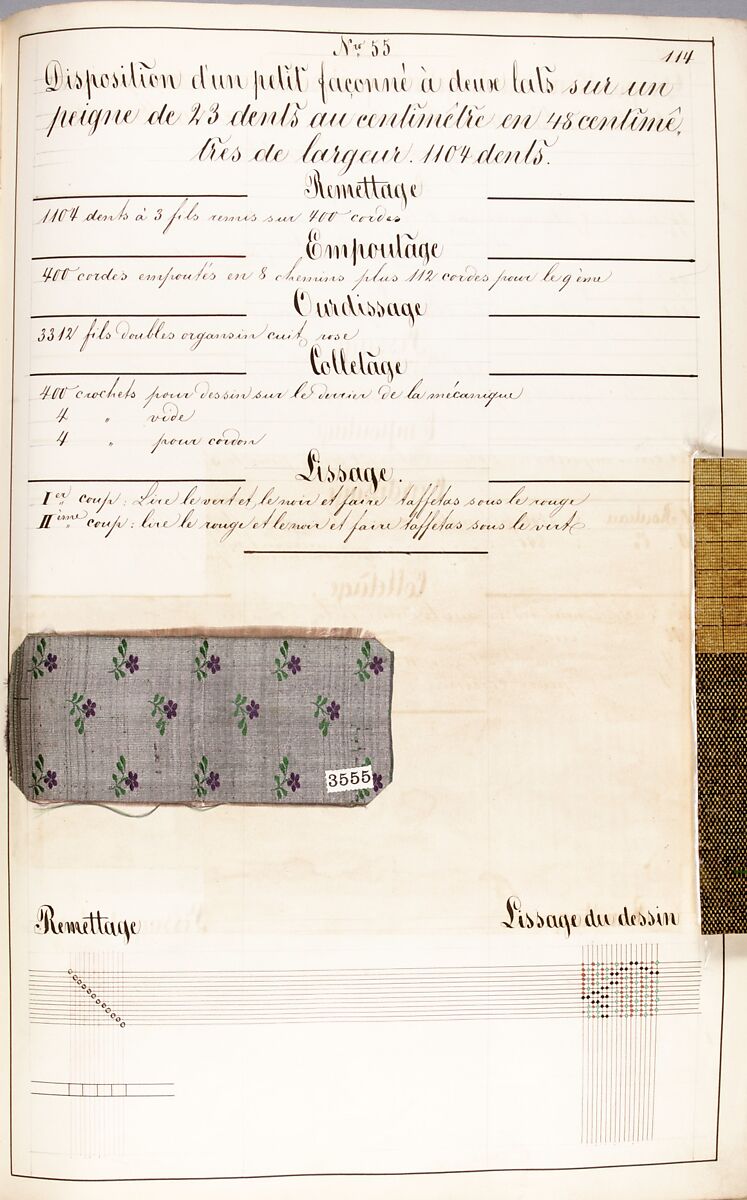 Nro 55
114
Disposition d'un petit façonné à deux lats sur un
peigne de 23 dents au centimêtre en 48 centimê,
tres de largeur. 1104 dents.
Remettage
1104 dents à 3 fils remis sur 400 cordes
Empoutage
400 cordes empoutés en 8 chemins plus 112 cordes pour le 9ème
Ourdissage
3312 fils doubles organsin cuit, rose
Colletage
400 crochets pour dessin sur le derrier de la mécanique
4 " vide
4 " pour cordon
Lissage.
Ier coup: Lire le vert et le noir et faire taffetas sous le rouge
IIième coup: lire le rouge et le noir et faire taffetas sous le vert
3555
Remettage
Lissage du dessin